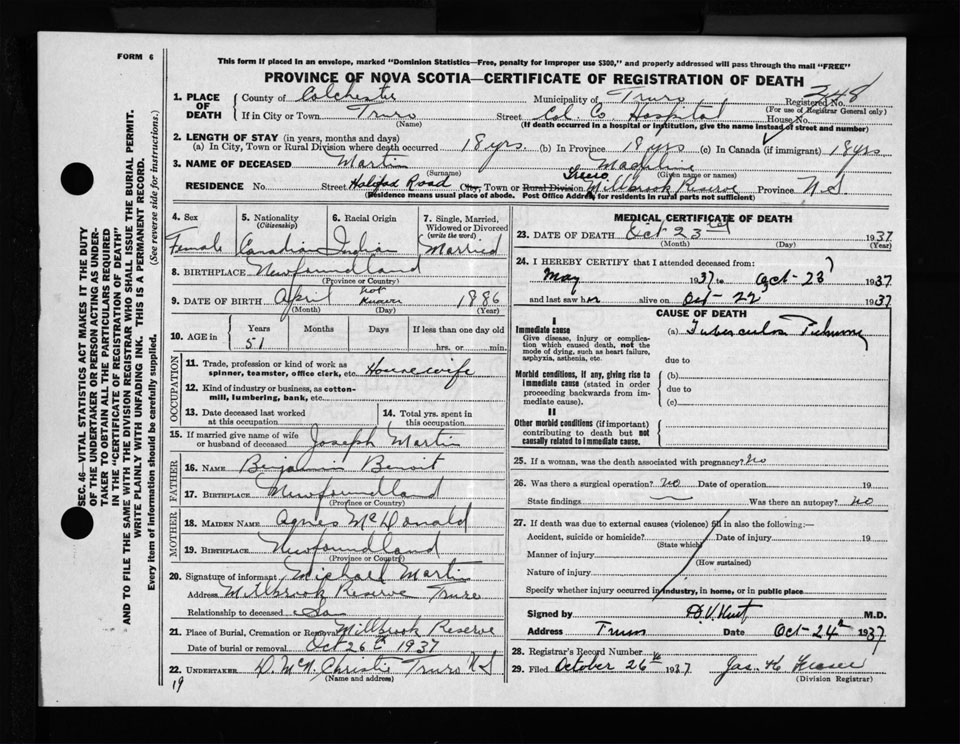 FORM 6
This form if placed in an envelope, marked "Dominion Statistics—Free, penalty for improper use $300," and properly addressed will pass through the mail "FREE"
PROVINCE OF NOVA SCOTIA—CERTIFICATE OF REGISTRATION OF DEATH
248
1. PLACE OF DEATH County of Colchester Municipality of Truro Registered No.
(For use of Registrar General only)
If in City or Town Truro Street Col. Co Hospital House No.
(Name) (If death occurred in a hospital or institution, give the name instead of street and number)
2. LENGTH OF STAY (in years, months and days)
(a) In City, Town or Rural Division where death occurred 18 yrs (b) In Province 18 yrs (c) In Canada (if immigrant) 18 yrs
3. NAME OF DECEASED Martin Madeline
(Surname) (Given name or names)
RESIDENCE No. Street Halifax Road City, Town or Rural Division Truro Millbrook Reserve Province N S
(Residence means usual place of abode. Post Office Address for residents in rural parts not sufficient)
4. Sex 5. Nationality (Citizenship) 6. Racial Origin 7. Single, Married, Widowed or Divorced (write the word)
Female Canadian Indian Married
8. BIRTHPLACE Newfoundland
(Province or Country)
9. DATE OF BIRTH April not known 1886
(Month) (Day) (Year)
10. AGE in Years Months Days If less than one day old
51 hrs. or min.
OCCUPATION
11. Trade, profession or kind of work as spinner, teamster, office clerk, etc. Housewife
12. Kind of industry or business, as cotton-mill, lumbering, bank, etc.
13. Date deceased last worked at this occupation 14. Total yrs. spent in this occupation
15. If married give name of wife or husband of deceased Joseph Martin
FATHER
16. NAME Benjamin Benoit
17. BIRTHPLACE Newfoundland
(Province or Country)
MOTHER
18. MAIDEN NAME Agnes McDonald
19. BIRTHPLACE Newfoundland
(Province or Country)
20. Signature of informant Michael Martin
Address Millbrook Reserve Truro
Relationship to deceased Son
21. Place of Burial, Cremation or Removal Millbrook Reserve
Date of burial or removal Oct 26 1937
22. UNDERTAKER D. McN. Christie Truro N S
(Name and address)
19
MEDICAL CERTIFICATE OF DEATH
23. DATE OF DEATH Oct 23 1937
(Month) (Day) (Year)
24. I HEREBY CERTIFY that I attended deceased from:
May 1937 to Oct-23 1937
and last saw her alive on Oct-22 1937
CAUSE OF DEATH
I
Immediate cause (a)
Give disease, injury or complication which caused death, not the mode of dying, such as heart failure, asphyxia, asthenia, etc.
due to
Morbid conditions, if any, giving rise to immediate cause (stated in order proceeding backwards from immediate cause).
(b)
due to
(c)
II
Other morbid conditions (if important) contributing to death but not causally related to immediate cause.
25. If a woman, was the death associated with pregnancy? No
26. Was there a surgical operation? No Date of operation 19
State findings Was there an autopsy? No
27. If death was due to external causes (violence) fill in also the following:—
Accident, suicide or homicide? Date of injury 19
(State which)
Manner of injury
(How sustained)
Nature of injury
Specify whether injury occurred in industry, in home, or in public place
Signed by M.D.
Address Truro Date Oct-24 1937
28. Registrar's Record Number
29. Filed October 26 1937
(Division Registrar)
SEC. 46—VITAL STATISTICS ACT MAKES IT THE DUTY
OF THE UNDERTAKER OR PERSON ACTING AS UNDER-
TAKER TO OBTAIN ALL THE PARTICULARS REQUIRED
IN THE "CERTIFICATE OF REGISTRATION OF DEATH"
AND TO FILE THE SAME WITH THE DIVISION REGISTRAR WHO SHALL ISSUE THE BURIAL PERMIT.
WRITE PLAINLY WITH UNFADING INK. THIS IS A PERMANENT RECORD.
Every item of information should be carefully supplied. (See reverse side for instructions.)